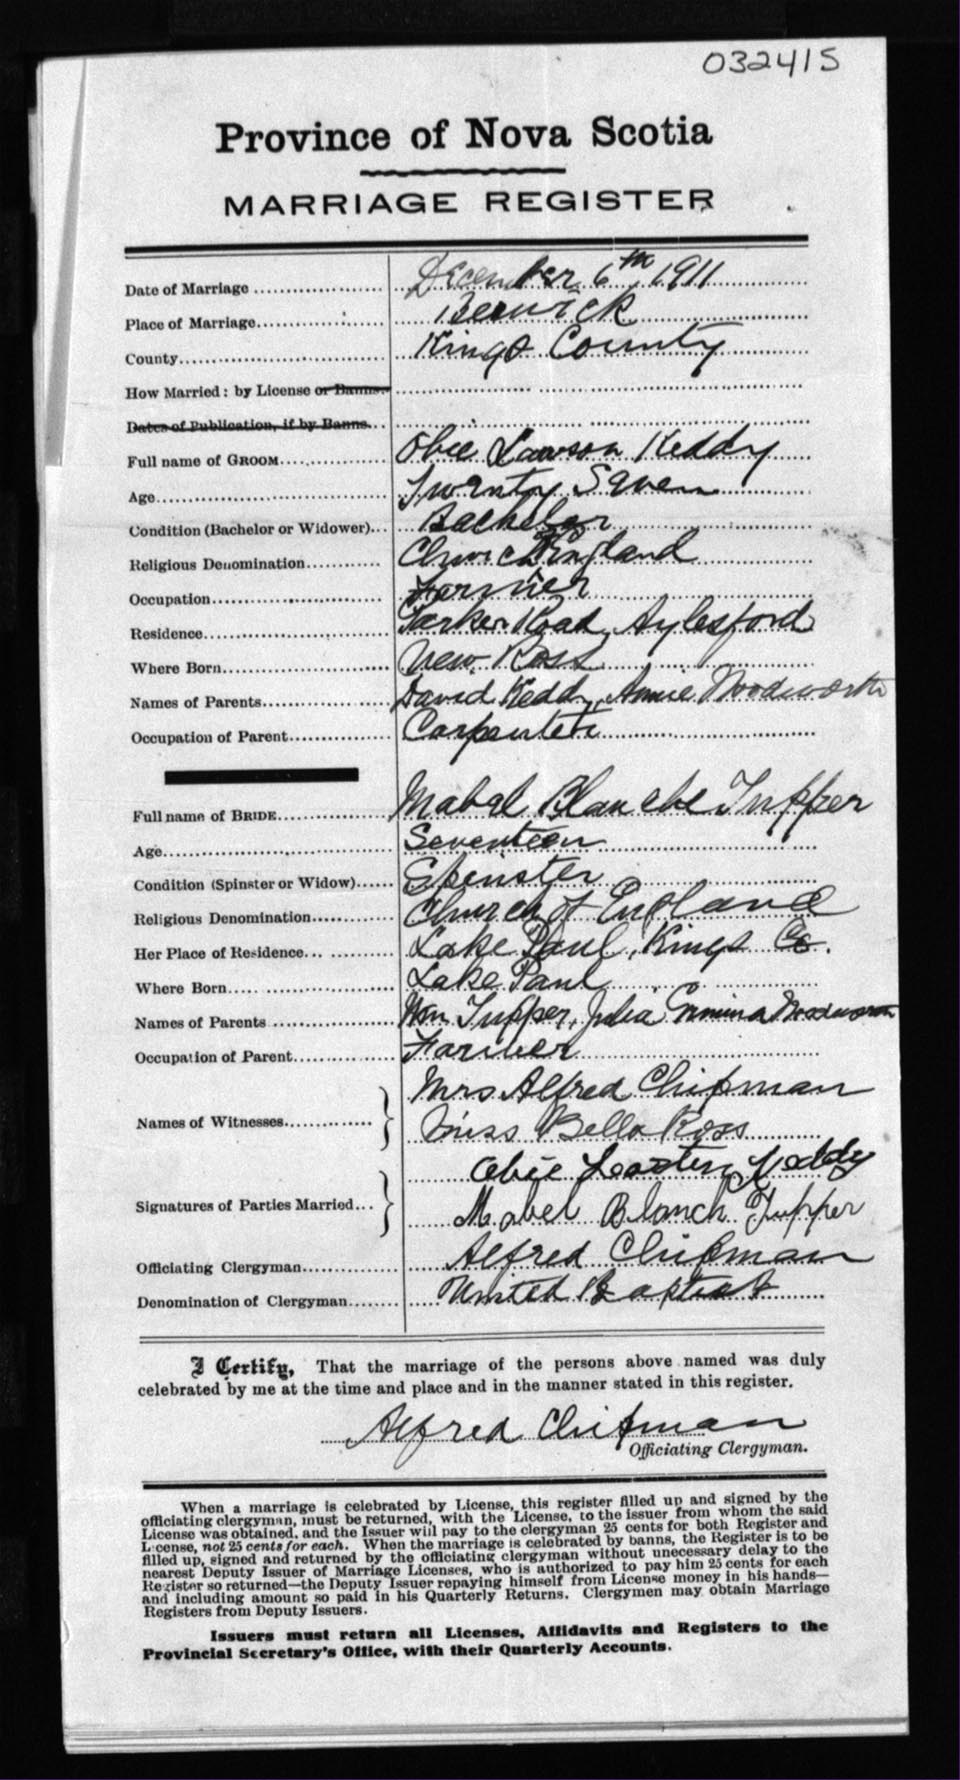 032415
Province of Nova Scotia
MARRIAGE REGISTER
Date of Marriage December 6th 1911
Place of Marriage Berwick
County Kings County
How Married: by License or Banns.
Dates of Publication, if by Banns.
Full name of GROOM Obie Lawson Keddy
Age Twenty Seven
Condition (Bachelor or Widower) Bachelor
Religious Denomination Church England
Occupation Farmer
Residence Parker Road, Aylesford
Where Born New Ross
Names of Parents David Keddy, Annie Woodworth
Occupation of Parent Carpenter
Full name of BRIDE Mabel Blanche Tupper
Age Seventeen
Condition (Spinster or Widow) Spinster
Religious Denomination Church of England
Her Place of Residence Lake Paul, Kings Co.
Where Born Lake Paul
Names of Parents Wm Tupper, Julia Woodworth
Occupation of Parent Farmer
Mrs Alfred Chipman
Names of Witnesses
Miss Bella Ross
Obie Keddy
Signatures of Parties Married
Mabel Blanch Tupper
Officiating Clergyman Alfred Chipman
Denomination of Clergyman United Baptist
I Certify, That the marriage of the persons above named was duly
celebrated by me at the time and place and in the manner stated in this register.
Alfred Chipman
Officiating Clergyman.
When a marriage is celebrated by License, this register filled up and signed by the
officiating clergyman, must be returned, with the License, to the issuer from whom the said
License was obtained, and the Issuer will pay to the clergyman 25 cents for both Register and
License, not 25 cents for each. When the marriage is celebrated by banns, the Register is to be
filled up, signed and returned by the officiating clergyman without unecessary delay to the
nearest Deputy Issuer of Marriage Licenses, who is authorized to pay him 25 cents for each
Register so returned—the Deputy Issuer repaying himself from License money in his hands—
and including amount so paid in his Quarterly Returns. Clergymen may obtain Marriage
Registers from Deputy Issuers.
Issuers must return all Licenses, Affidavits and Registers to the
Provincial Secretary's Office, with their Quarterly Accounts.